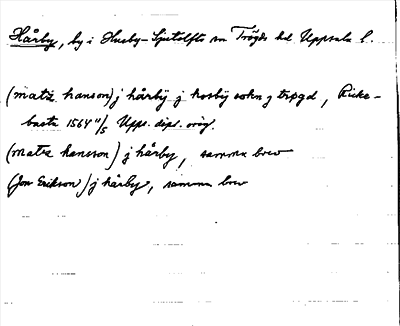 Hårby, by i Husby-Sjutolfts sn Trögds hd Uppsala l.
(matz hanson) j hårbij j hosby sokn j trpgd, Ricke-
basta 1564 11/5 Upps. dipl. orig.
(matz hansson) j hårby, samma brev
(Jon Erikson) j hårby, samma brev